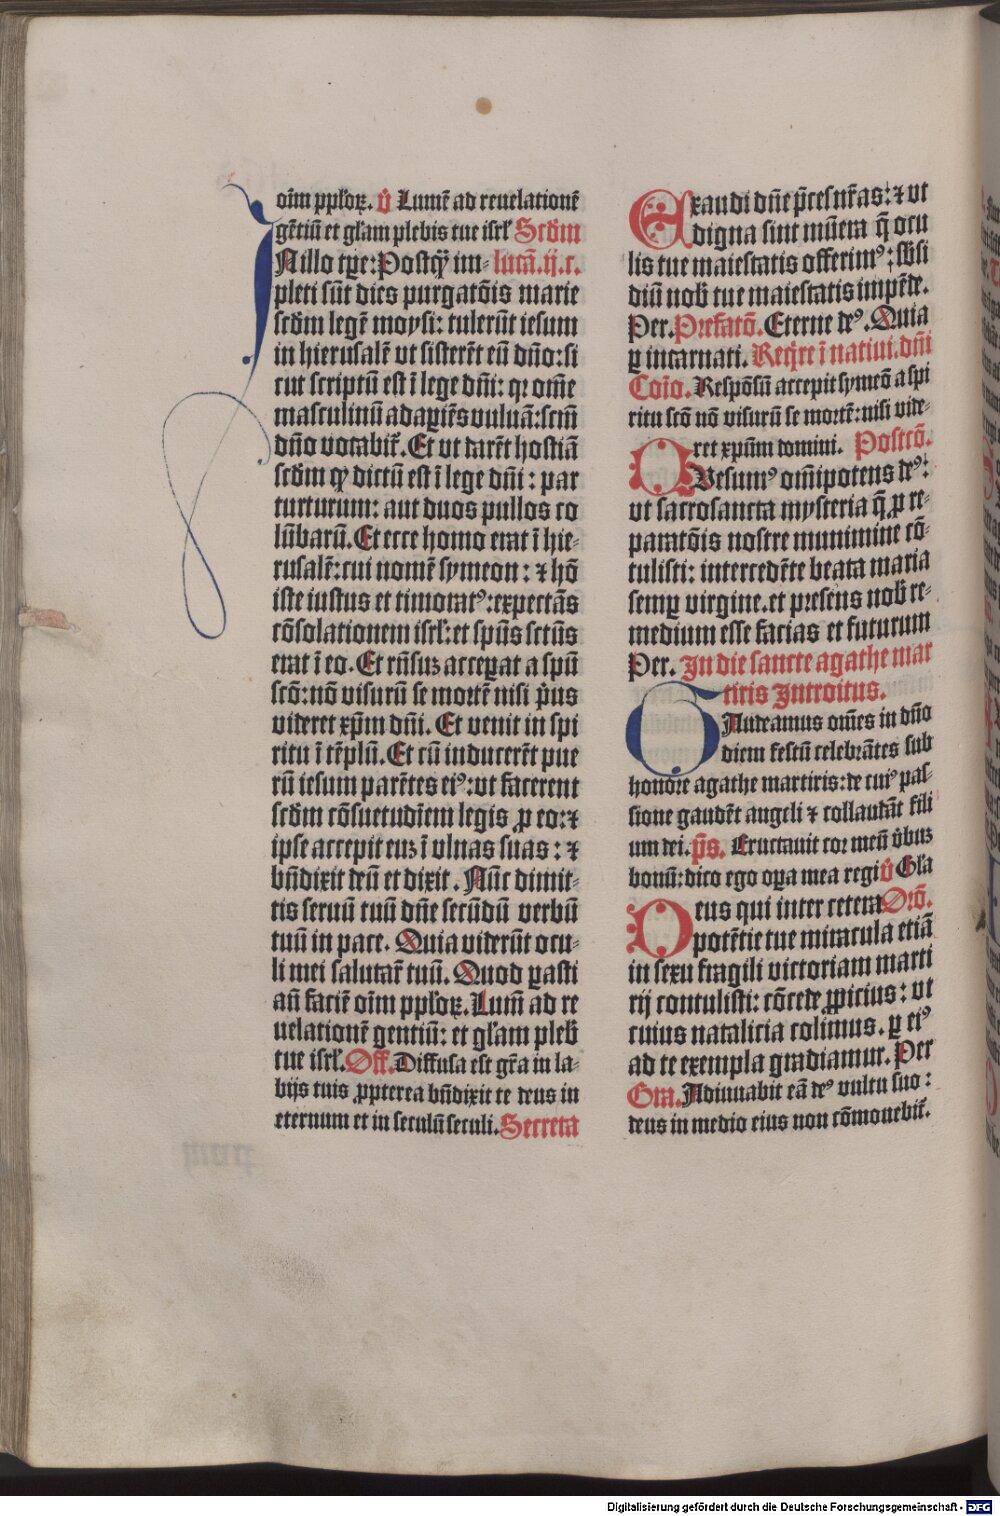 oīm pplꝰoꝝ. v̄ Lumē ad reuelationē
gētiū et gl'am plebis tue isrl' Scd̄m
IN illo tp̄e: Postq̄ȝ im- lucā.ij.c.
pleti sūt dies purgatōis marie
scd̄m legē moysi: tulerūt iesum
in hierusalē vt sisterēt eū dn̄o: si
cut scriptū est ī lege dn̄i: qꝛ om̄e
masculinū adaꝑiēs vuluā: scm̄
dn̄o vocabit᷑. Et vt darēt hostiā
scd̄m qȝ dictū est ī lege dn̄i: par
turturum: aut duos pullos co
lūbarū. Et ecce homo erat ī hie-
rusalē: cui nomē symeon: ⁊ hō
iste iustus et timoratꝰ: expectās
cōsolationem isrl': et spūs sctūs
erat ī eo. Et rn̄suȝ acceꝑat a spū
scō: nō visurū se mortē nisi pͥus
videret xp̄m dn̄i. Et venit in spi
ritu ī tēplū. Et cū inducerēt pue
rū iesum parētes eiꝰ: vt facerent
scd̄m cōsuetudīem legis ꝓ eo: ⁊
ipse accepit euȝ ī vlnas suas: ⁊
bn̄dixit deū et dixit. Nūc dimit-
tis seruū tuū dn̄e secūdū verbū
tuū in pace. Quia viderūt ocu-
li mei salutar̄ tuū. Quod ꝑasti
aū faciē oīm ppl'oꝝ. Lumē ad re
uelationē gentiū: et gl'am pleb̄
tue isrl'. Off. Diffusa est gr̄a in la-
bijs tuis ꝓpterea bn̄dixit te deus in
eternum et in seculū seculi. Secreta
Exaudi dn̄e p̄ces nr̄as: ⁊ vt
digna sint mūera q̄ ocu
lis tue maiestatis offerimꝰ: sb̄si
diū nob̄ tue maiestatis impēde.
Per. Prefatō. Eterne deꝰ. Quia
ꝑ incarnati. Reqͥre ī natiui. dn̄i
Cōio. Respōsū accepit symeō a spi
ritu scō nō visurū se mortē: nisi vide-
ret xp̄um domini. Postcō.
QVesumꝰ om̄ipotens deꝰ:
vt sacrosancta mysteria q̄ ꝓ re-
paratōis nostre munimine cō-
tulisti: intercedēte beata maria
semꝑ virgine. et presens nob̄ re-
medium esse facias et futurum
Per. In die sancte agathe mar
tiris Introitus.
GAudeamus om̄es in dn̄o
diem festū celebrātes sub
honore agathe martiris: de cuiꝰ pas-
sione gaudēt angeli ⁊ collaudāt fili
um dei. p̄s. Eructauit cor meū v̄buȝ
bonū: dico ego oꝑa mea regi v̄ Gla
DEus qui inter cetera Orō.
potētie tue miracula etiā
in sexu fragili victoriam marti
rij contulisti: cōcede ꝓpicius: vt
cuius natalicia colimus. ꝑ eiꝰ
ad te exempla gradiamur. Per
Gra. Adiuuabit eā deꝰ vultu suo:
deus in medio eius non cōmouebit᷑.
Digitalisierung gefördert durch die Deutsche Forschungsgemeinschaft - DFG